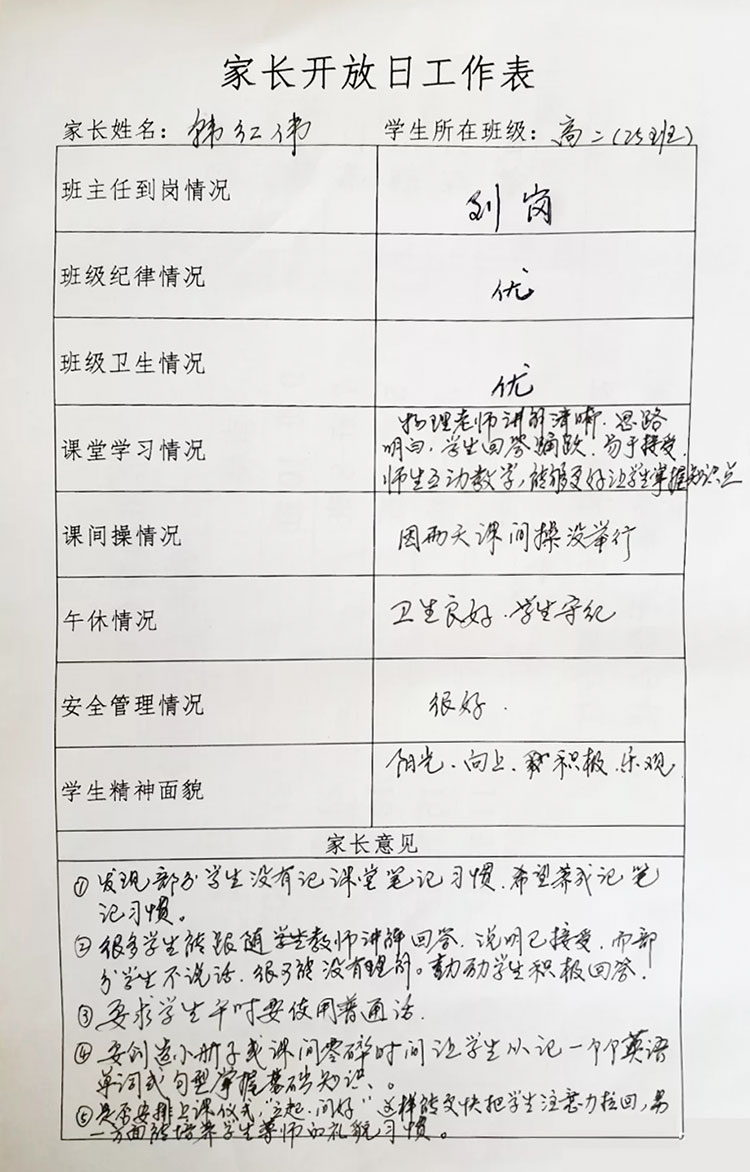 家长开放日工作表
家长姓名：韩红伟 学生所在班级：高二（25班）
班主任到岗情况 到岗
班级纪律情况 优
班级卫生情况 优
课堂学习情况 物理老师讲解清晰．思路
明白，学生回答踊跃．易于接受．
师生互动教学，能够更好让学生掌握知识点
课间操情况 因雨天课间操没举行
午休情况 卫生良好．学生守纪
安全管理情况 很好．
学生精神面貌 阳光．向上．积极．乐观
家长意见
①发现部分学生没有记课堂笔记习惯．希望养成记笔
记习惯。
②很多学生能跟随学生教师讲解回答．说明已接受．而部
分学生不说话．很可能没有理解。鼓励学生积极回答．
③要求学生平时要使用普通话．
④要创造小册子或课间零碎时间让学生从记一个个英语
单词或句型掌握基础知识、。
⑤是否安排上课仪式，“立起．问好”这样能更快把学生注意力拉回，另
一方面能培养学生尊师的礼貌习惯。